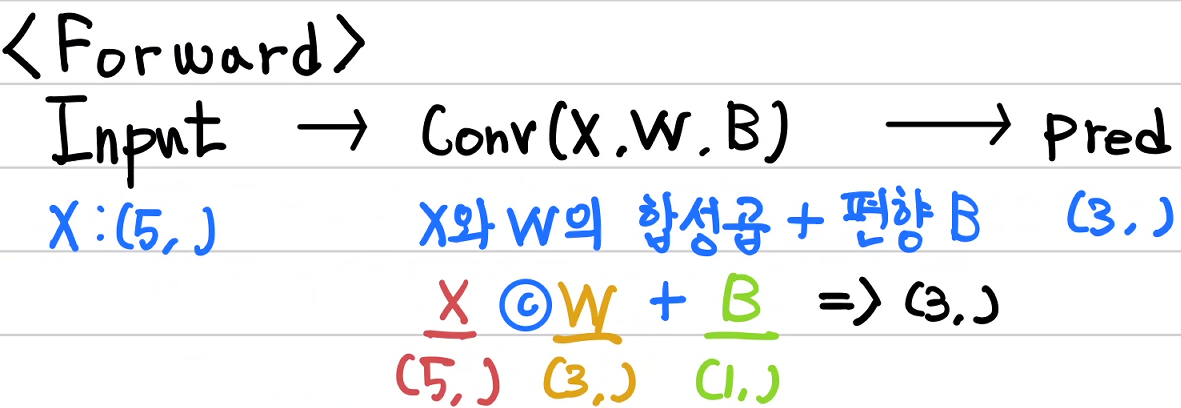 <Forward>
Input → Conv(X.W.B) → Pred
X:(5,) X와 W의 합성곱 + 편향 B (3,)
X ⓒ W + B => (3,)
(5,) (3,) (1,)